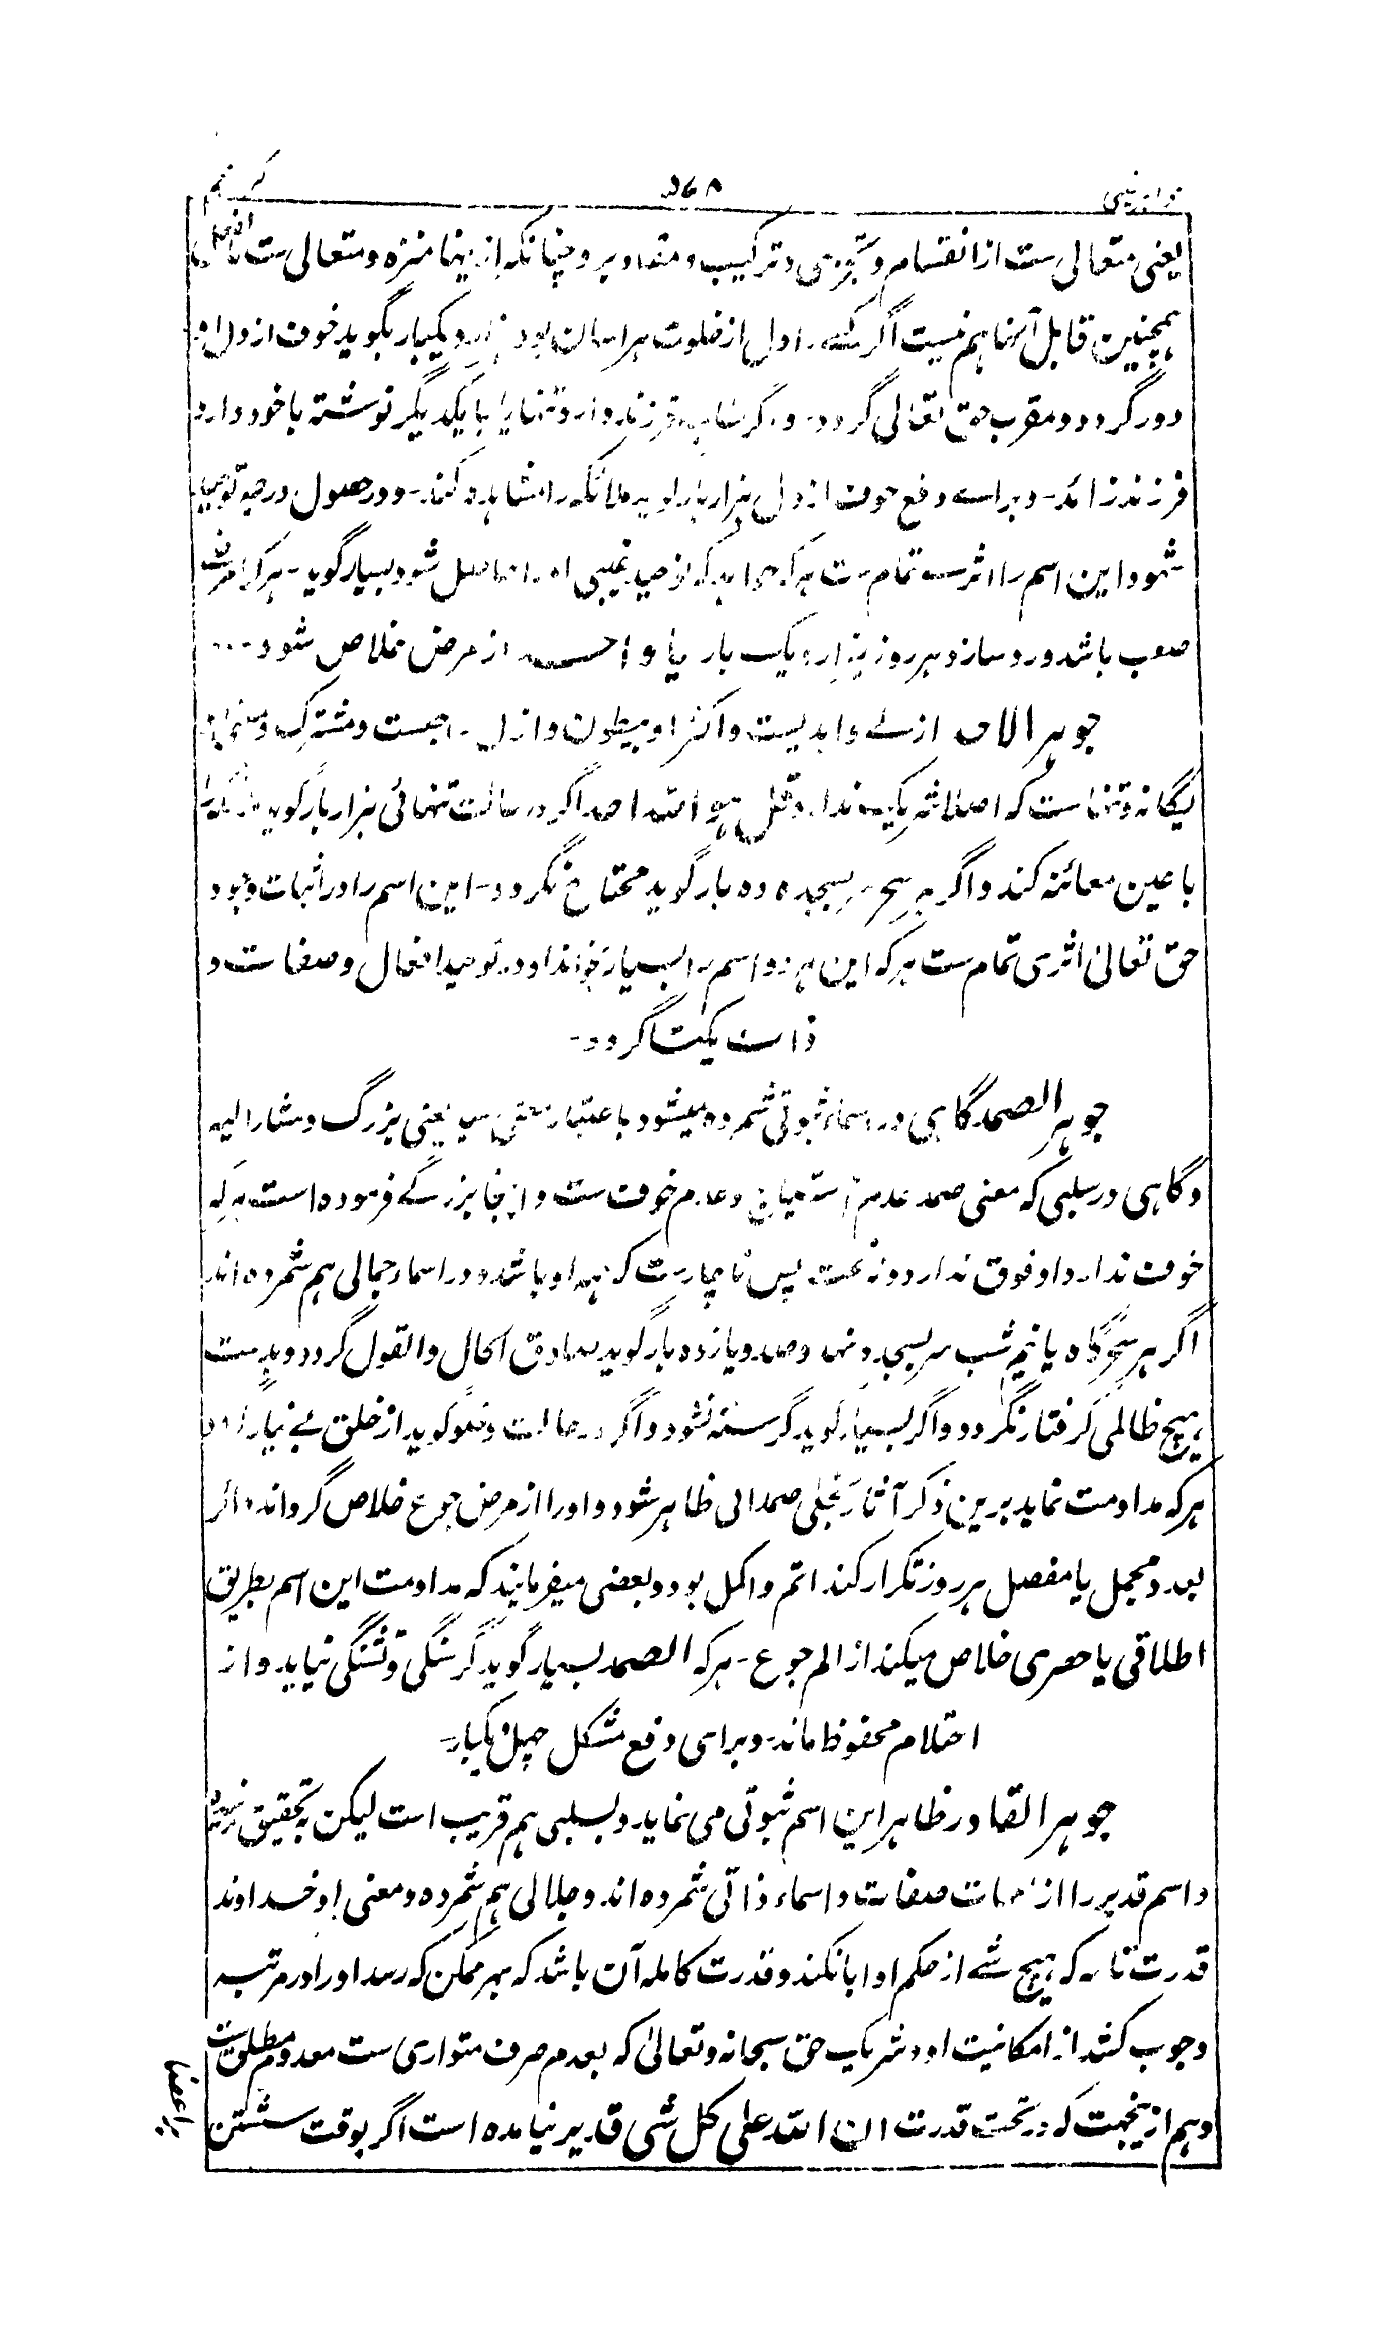 ۵۶۸
یعنی متعالی ست از انقسام و تجزی و ترکیب و مقادیر و چنانکه ازینها منزه و متعالی ست
همچنین قابل آنها هم نیست اگر کسے را دل از خلوت هراسان بود هزار و یکبار بگوید خوف از دل او
دور گردد و مقرب حق تعالی گردد - و فرزند و تنها با یکدیگر نوشته با خود دارد
فرزند زاید - و براے دفع خوف از دل هزار بار گوید ملائکه را مشاهده کند - و در حصول درجه توحید
شهود این اسم را اثرے تمام ست هرکه خواهد که توحید غیبی او را حاصل شود بسیار گوید - هرکرا مرض
صعب باشد ورد سازد هر روز هزار و یک بار یا واحد از مرض خلاص شود ...
جوهر الاحد ازلے و ابدیست و اکثر او ببطون و ازل و مشترک
یگانه و تنهاست که اصلا شریک ندارد قل هو الله احد اگر در حالت تنهائی هزار بار گوید ملائکه را
با عین معائنه کند و اگر بسجده ده بار گوید محتاج نگردد - این اسم را در اثبات وجود
حق تعالی اثری تمام ست هرکه این هر دو اسم را بسیار خواند او در توحید افعال و صفات و
ذات یکتا گردد -
جوهر الصمد گاهی در اسماء ثبوتی شمرده میشود باعتبار معنی سید یعنی بزرگ و مشار الیه
و گاهی در سلبی که معنی صمد عدم احتیاج و عدم خوف ست و ازینجا بزرگے فرموده است هرکه
خوف ندارد او فوق ندارد و نه تحت پس ناچارست که همه او باشد و در اسمار جمالی هم شمرده اند
اگر هر سحرگاه یا نیم شب سر بسجده نهد و صد و یازده بار گوید صادق الحال و القول گردد و بدست
هیچ ظالمی گرفتار نگردد و اگر بسیار گوید گرسنه نشود و اگر در حالت وضو گوید از خلق بے نیاز گردد
هرکه مداومت نماید برین ذکر آثار تجلی صمدانی ظاهر شود و او را از مرض جوع خلاص گرداند و اگر
بعدد مجمل یا مفصل هر روز تکرار کند اتم و اکمل بود و بعضی میفرمایند که مداومت این اسم بطریق
اطلاقی یا حصری خلاص میکند از الم جوع - هرکه الصمد بسیار گوید گرسنگی و تشنگی نیاید و از
احتلام محفوظ ماند - و برای دفع مشکل چهل و یکبار -
جوهر القادر ظاهر این اسم ثبوتی می نماید و بسلبی هم قریب است لیکن به تحقیق
و اسم قدیر را از امهات صفات و اسماء ذاتی شمرده اند و جلالی هم شمرده و معنی او خداوند
قدرت تامه که هیچ شے از حکم او ابا نکند و قدرت کامله آن باشد که بهر ممکن که رسد او را در مرتبه
وجوب کشد از امکانیت او و شریک حق سبحانه و تعالی که بعدم صرف متواری ست معدوم مطلق ست
و هم ازینجهت که در تحت قدرت ان الله علی کل شی قدیر نیامده است اگر بوقت شستن
اعضا